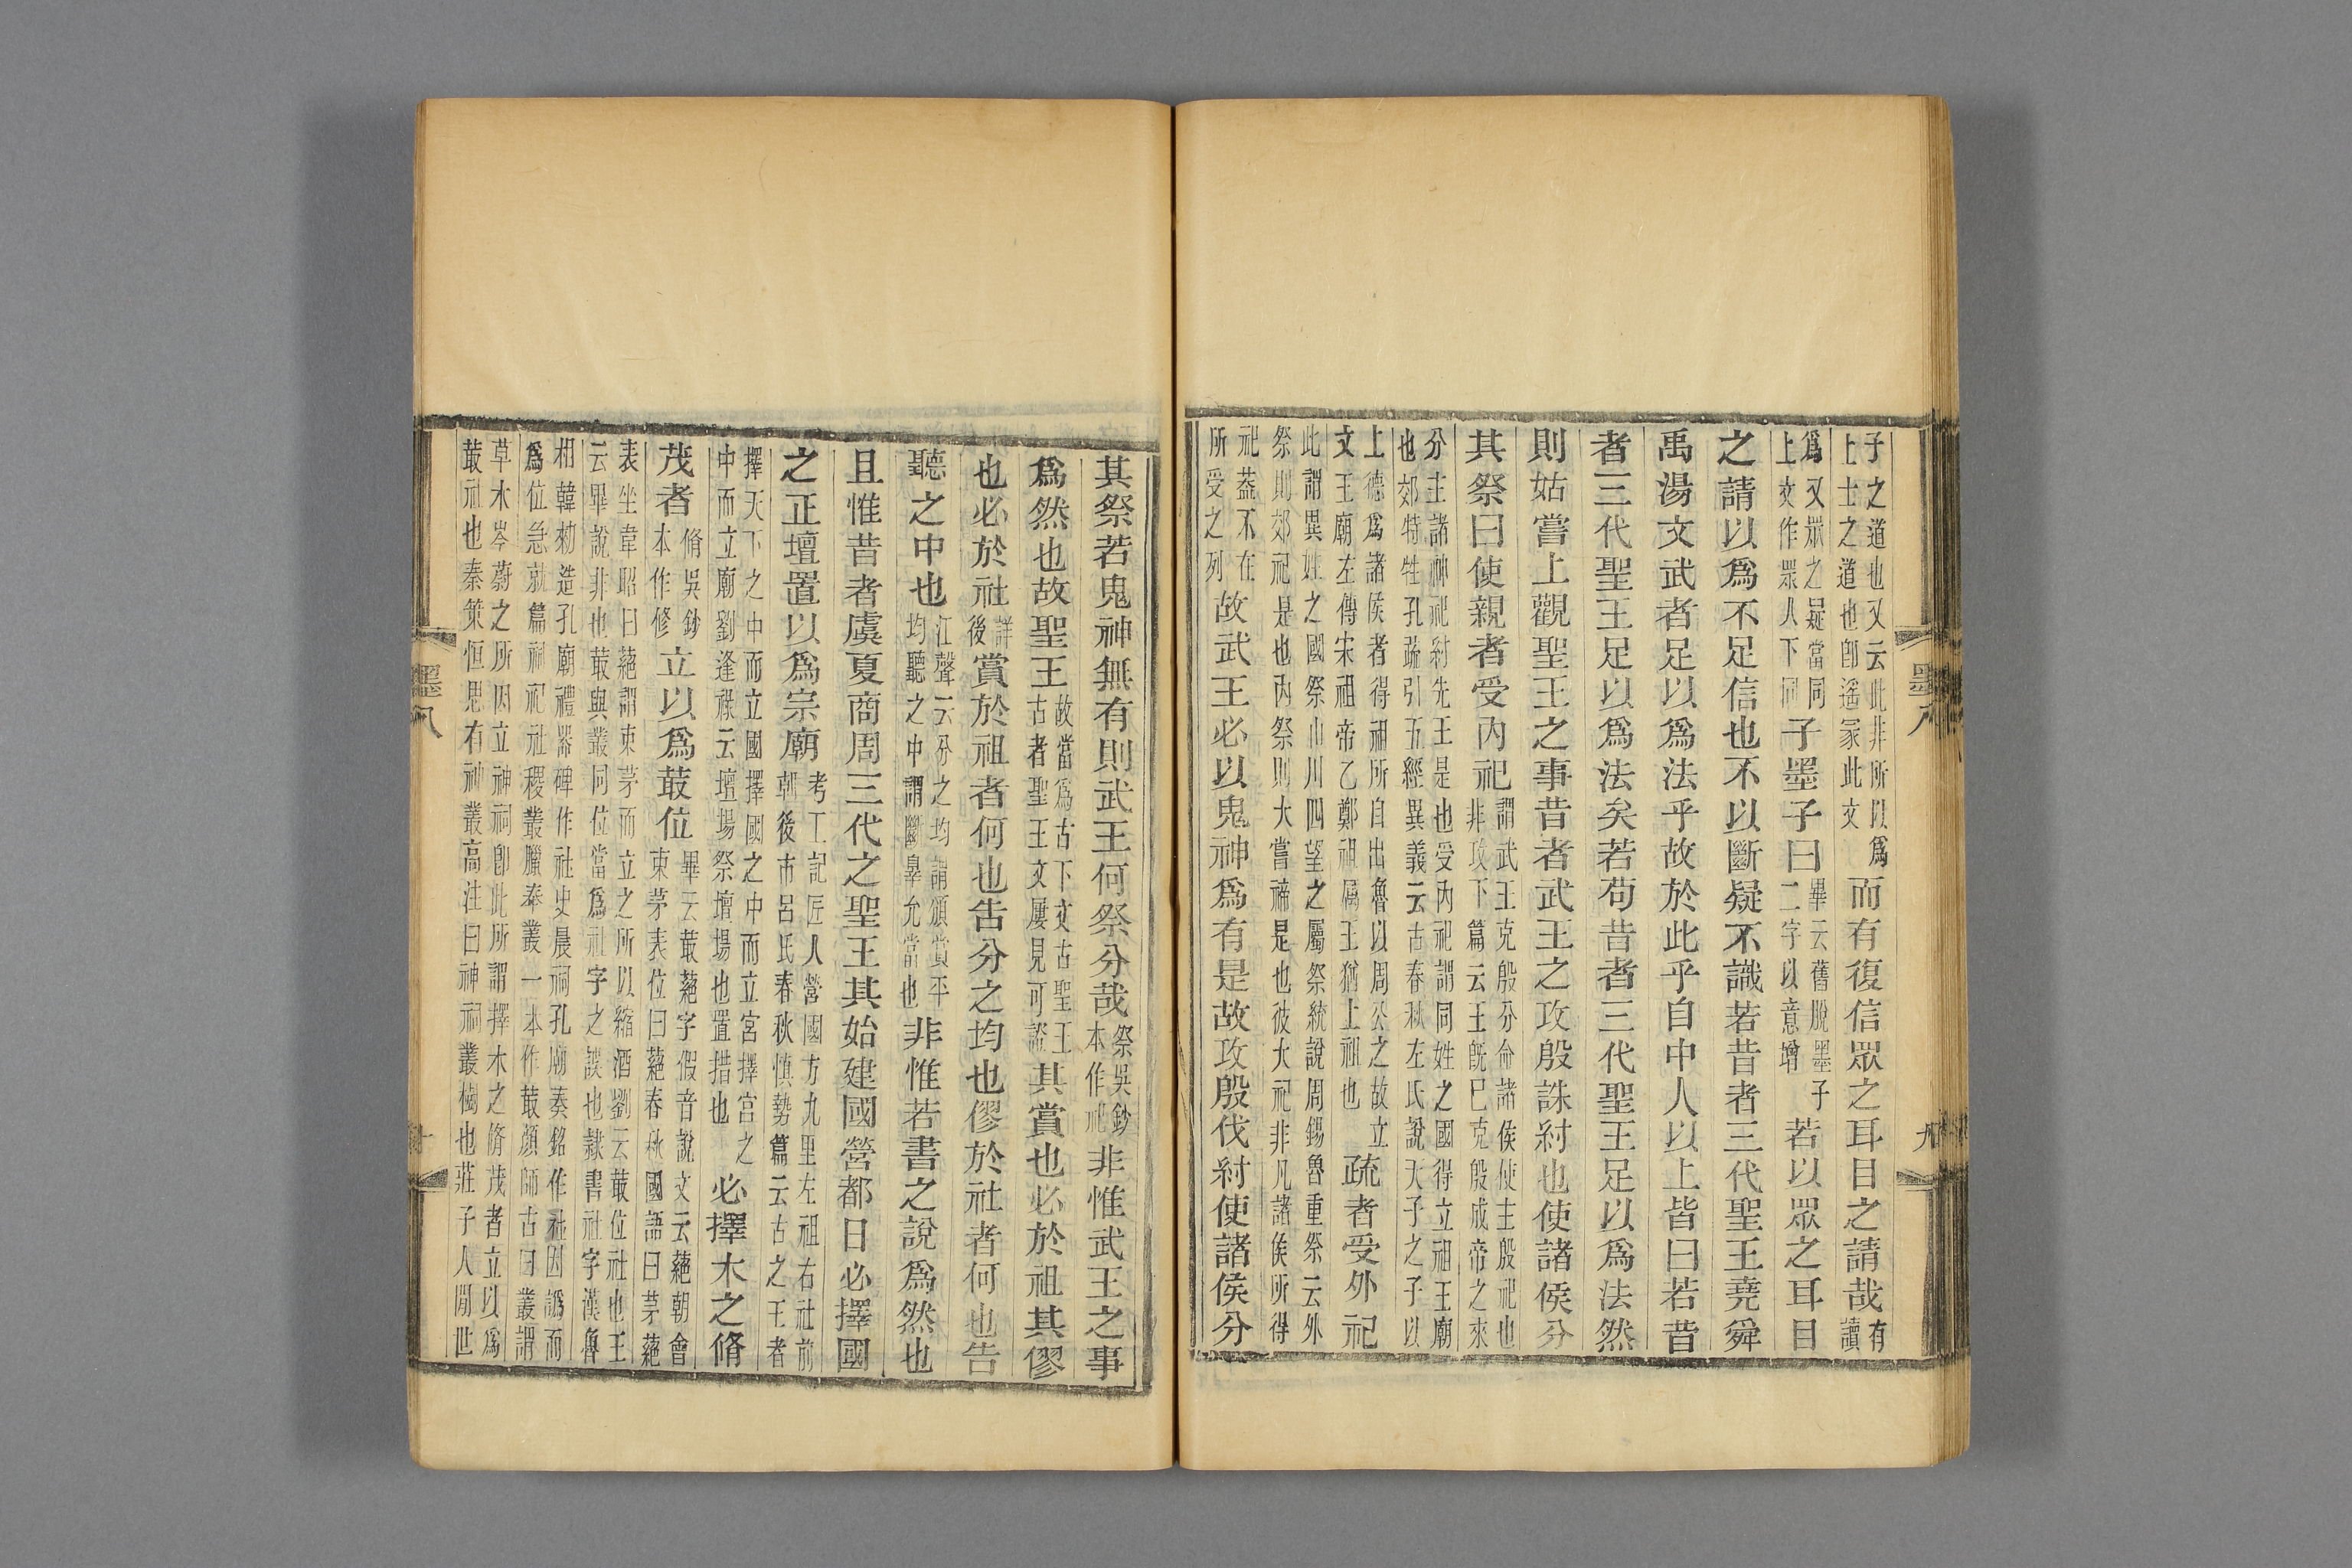 子之道也又云此非所以爲上士之道也卽遥冡此文而有復信眾之耳目之請哉有讀
爲又眾之疑當同上文作眾人下同子墨子曰畢云舊脫墨子二字以意增若以眾之耳目
之請以爲不足信也不以斷疑不識若昔者三代聖王堯舜
禹湯文武者足以爲法乎故於此乎自中人以上皆曰若昔
者三代聖王足以爲法矣若苟昔者三代聖王足以爲法然
則姑嘗上觀聖王之事昔者武王之攻殷誅紂也使諸侯分
其祭曰使親者受內祀謂武王克殷分命諸侯使主殷祀也非攻下篇云王旣已克殷成帝之來
分主諸神祀紂先王是也受內祀謂同姓之國得立祖王廟也郊特牲孔疏引五經異義云古春秋左氏說天子之子以
上德爲諸侯者得祖所自出魯以周公之故立文王廟左傳宋祖帝乙鄭祖厲王猶上祖也疏者受外祀
此謂異姓之國祭山川四望之屬祭統說周錫魯重祭云外祭則郊祀是也內祭則大嘗禘是也彼大祀非凡諸侯所得
祀葢不在所受之列故武王必以鬼神爲有是故攻殷伐紂使諸侯分
墨八
九
其祭若鬼神無有則武王何祭分哉祭吳鈔本作祀非惟武王之事
爲然也故聖王故當爲古下文古聖王古者聖王文屢見可證其賞也必於祖其僇
也必於社詳後賞於祖者何也告分之均也僇於社者何也告
聽之中也江聲云分之均謂頒賞平均聽之中謂斷辠允當也非惟若書之說爲然也
且惟昔者虞夏商周三代之聖王其始建國營都日必擇國
之正壇置以爲宗廟考工記匠人營國方九里左祖右社前朝後市呂氏春秋愼勢篇云古之王者
擇天下之中而立國擇國之中而立宮擇宮之中而立廟劉逢祿云壇場祭壇場也置措也必擇木之脩
茂者脩吳鈔本作修立以爲菆位畢云菆蕝字假音說文云蕝朝會束茅表位曰蕝春秋國語曰茅蕝
表坐韋昭曰蕝謂束茅而立之所以縮酒劉云菆位社也王云畢說非也菆與叢同位當爲社字之誤也隸書社字漢魯
相韓勑造孔廟禮器碑作社史晨祠孔廟奏銘作社因譌而爲位急就篇祠祀社稷叢臘奉叢一本作菆顏師古曰叢謂
草木岑蔚之所因立神祠卽此所謂擇木之脩茂者立以爲菆社也秦策恒思有神叢高注曰神祠叢樹也莊子人閒世
墨八
十